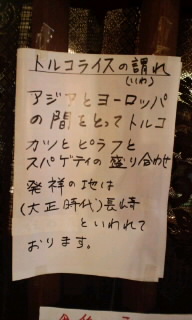 トルコライスの謂れ
(いわ)
アジアとヨーロッパ
の間をとってトルコ
カツとピラフと
スパゲティの盛り合わせ
発祥の地は
(大正時代)長崎
といわれて
おります。